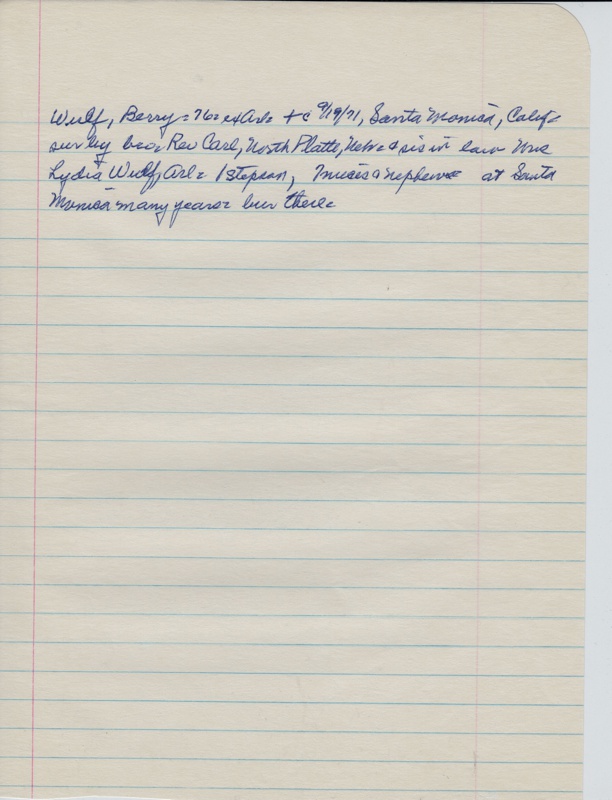 Wulf, Barry = 76 = ex Arl = + c 9/19/71, Santa Monica, Calif =
sur by bro = Rev Carl, North Platte, Nebr = & sis in law Mrs
Lydia Wulf, Arl = 1 stepson, nieces & nephews = at Santa
Monica many years = bur there =